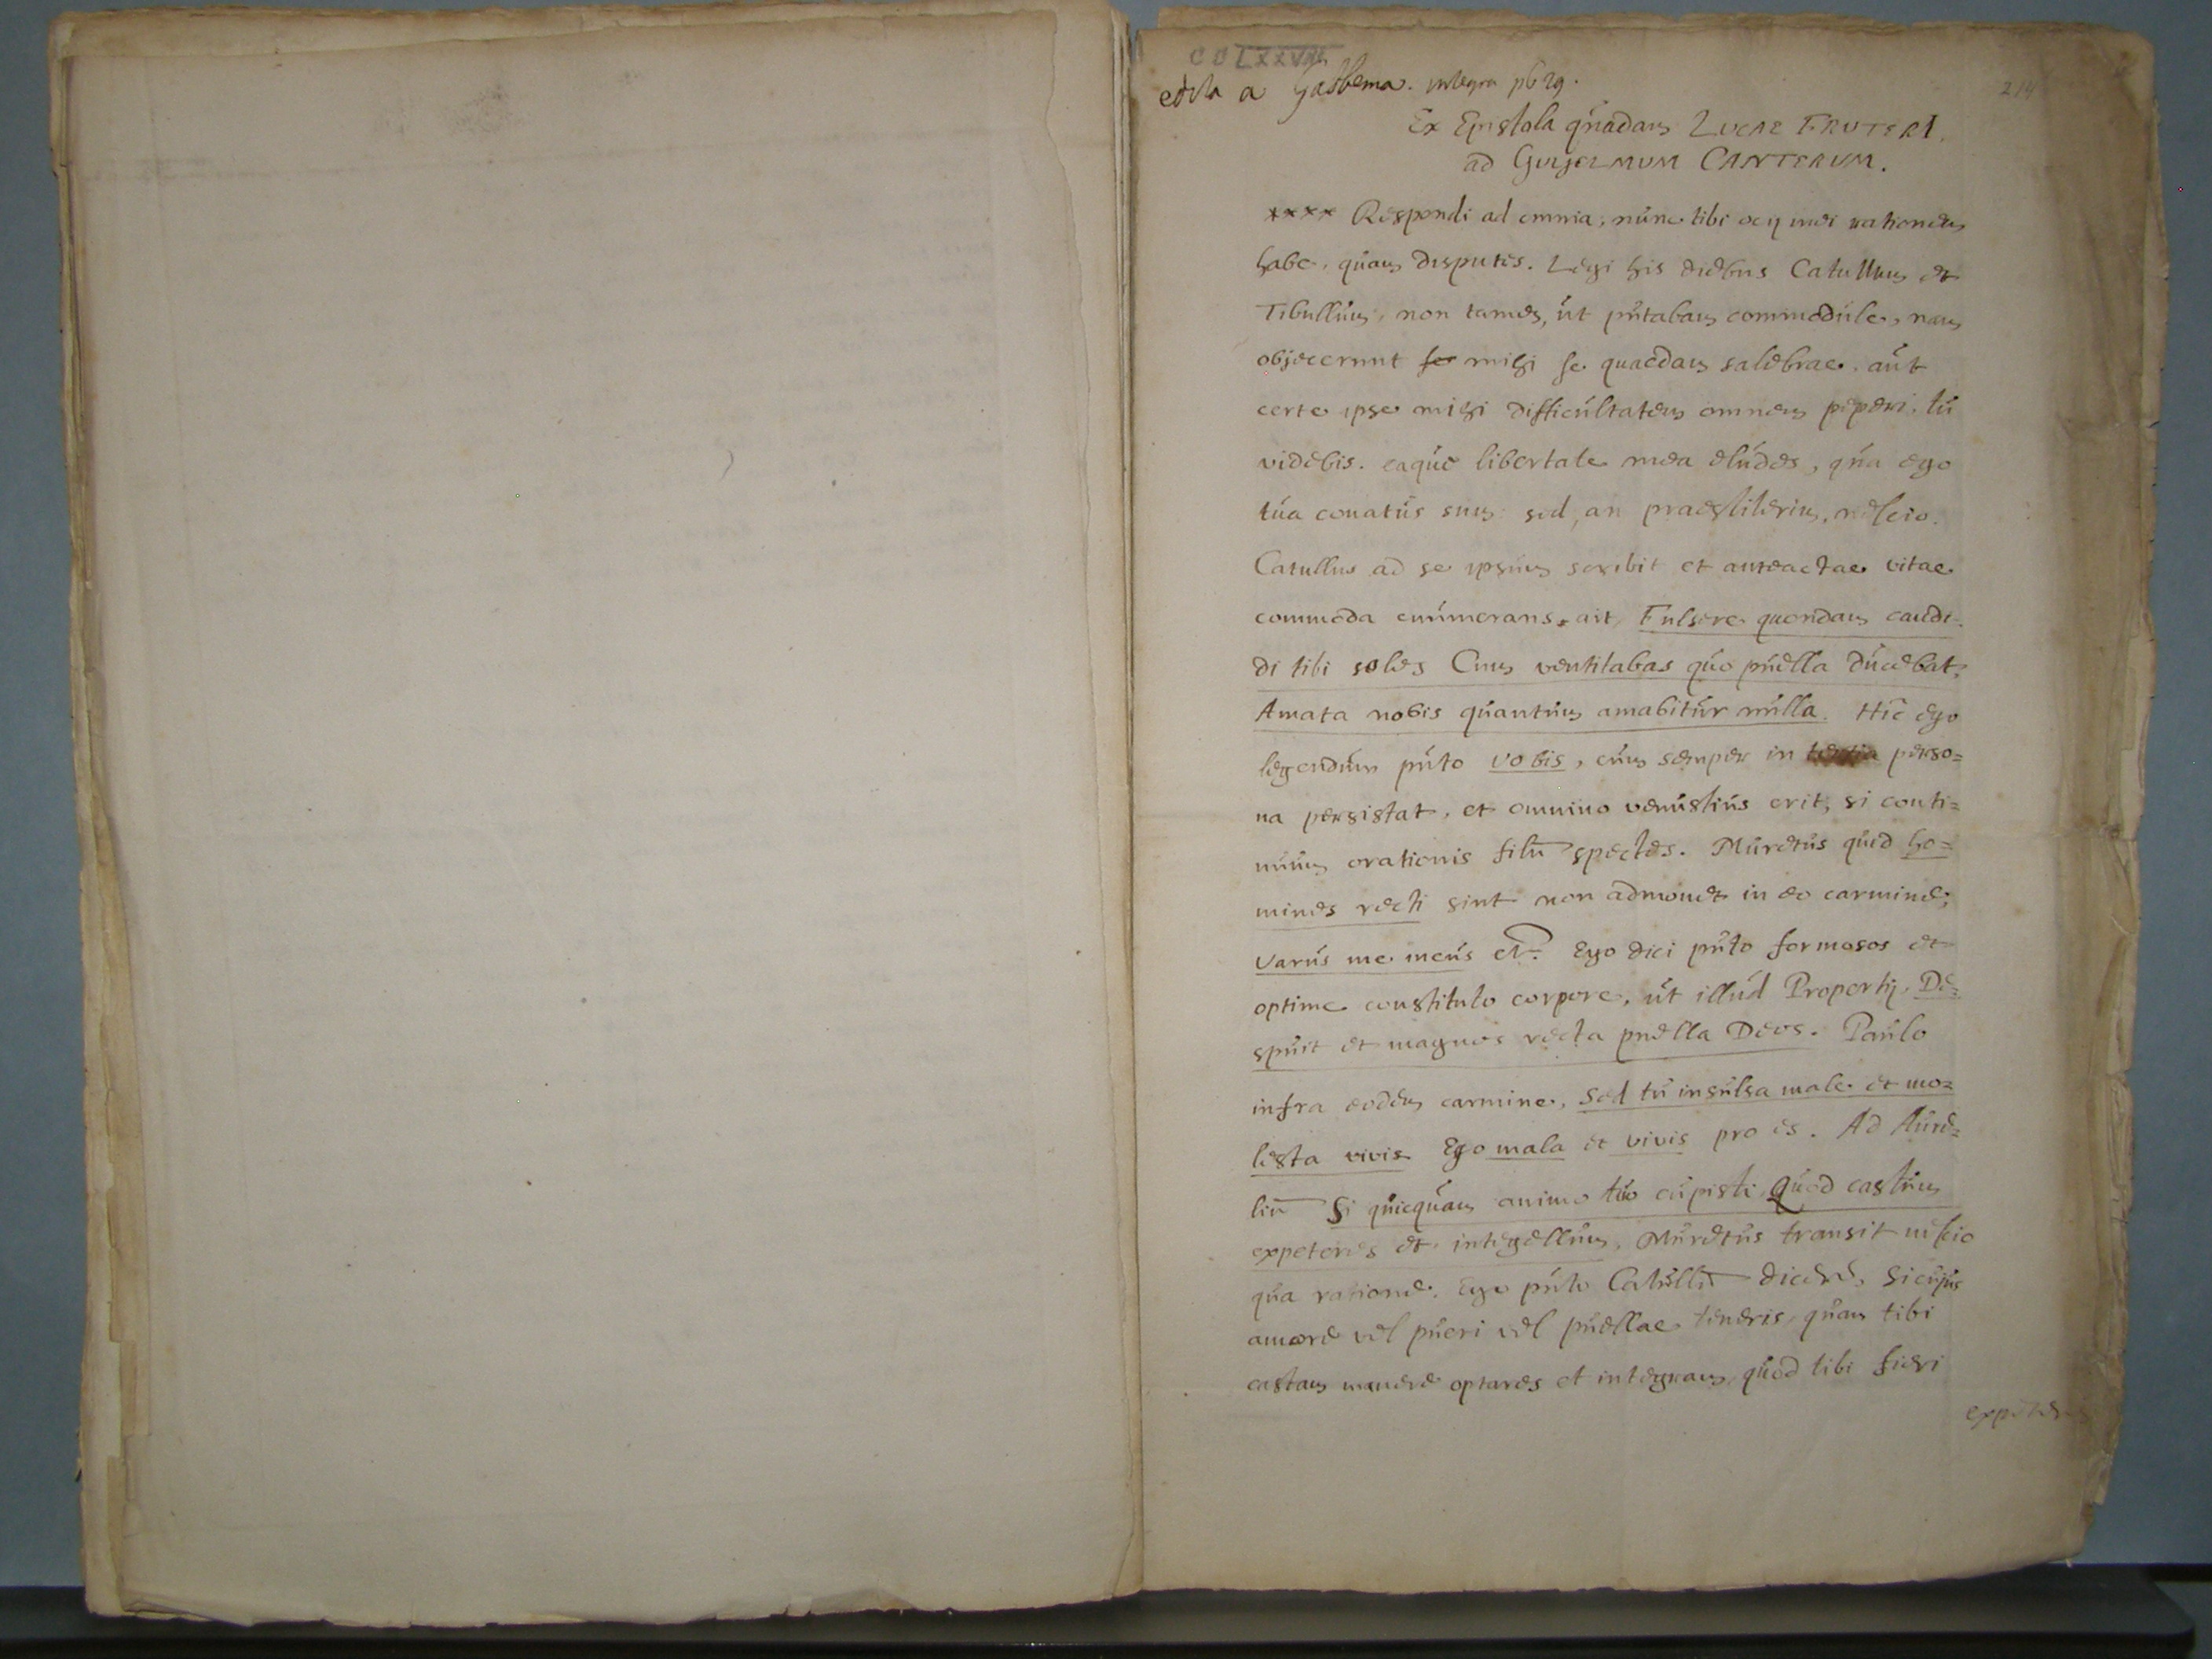 edita a Gabbema. integra pb 29.
214
Ex Epistola quadam LUCAE FRUTERI
ad GULIELMUM CANTERUM.
**** Respondi ad omnia, nunc tibi ocij mei rationem
habe, quam disputes. Legi his diebus Catullum et
Tibullum, non tamen, ut putabam commodule, nam
objecerunt se mihi se quaedam salebrae. aut
certe ipse mihi difficultatem omnem peperi. tu
videbis. eaque libertate mea eludes, qua ego
tua conatus sum: sed, an praestiterim, nescio.
Catullus ad se ipsum scribit et anteactae vitae
commoda enumerans, ait, Fulsere quondam candi-
di tibi soles Cum ventitabas quo puella ducebat.
Amata nobis quantum amabitur nulla. Hic ego
legendum puto vobis, cum semper in tertia perso=
na persistat, et omnino venustius erit, si conti=
nuum orationis filū spectes. Muretus quid ho=
mines recti sint non admonet in eo carmine;
Varus me meus etc. Ego dici puto formosos et
optime constituto corpore, ut illud Propertij. De=
spuit et magnos recta puella Deos. Paulo
infra eodem carmine, Sed tu insulsa male et mo=
lesta vivis Ego mala et vivis pro es. Ad Aure=
liū Si quicquam animo tuo cupisti, Quod castum
expeteres et integellum, Muretus transit nescio
qua ratione. Ego puto Catullū dicere, Si cujus
amore vel pueri vel puellae teneris, quam tibi
castam manere optares et integram, quod tibi fieri
expeteres